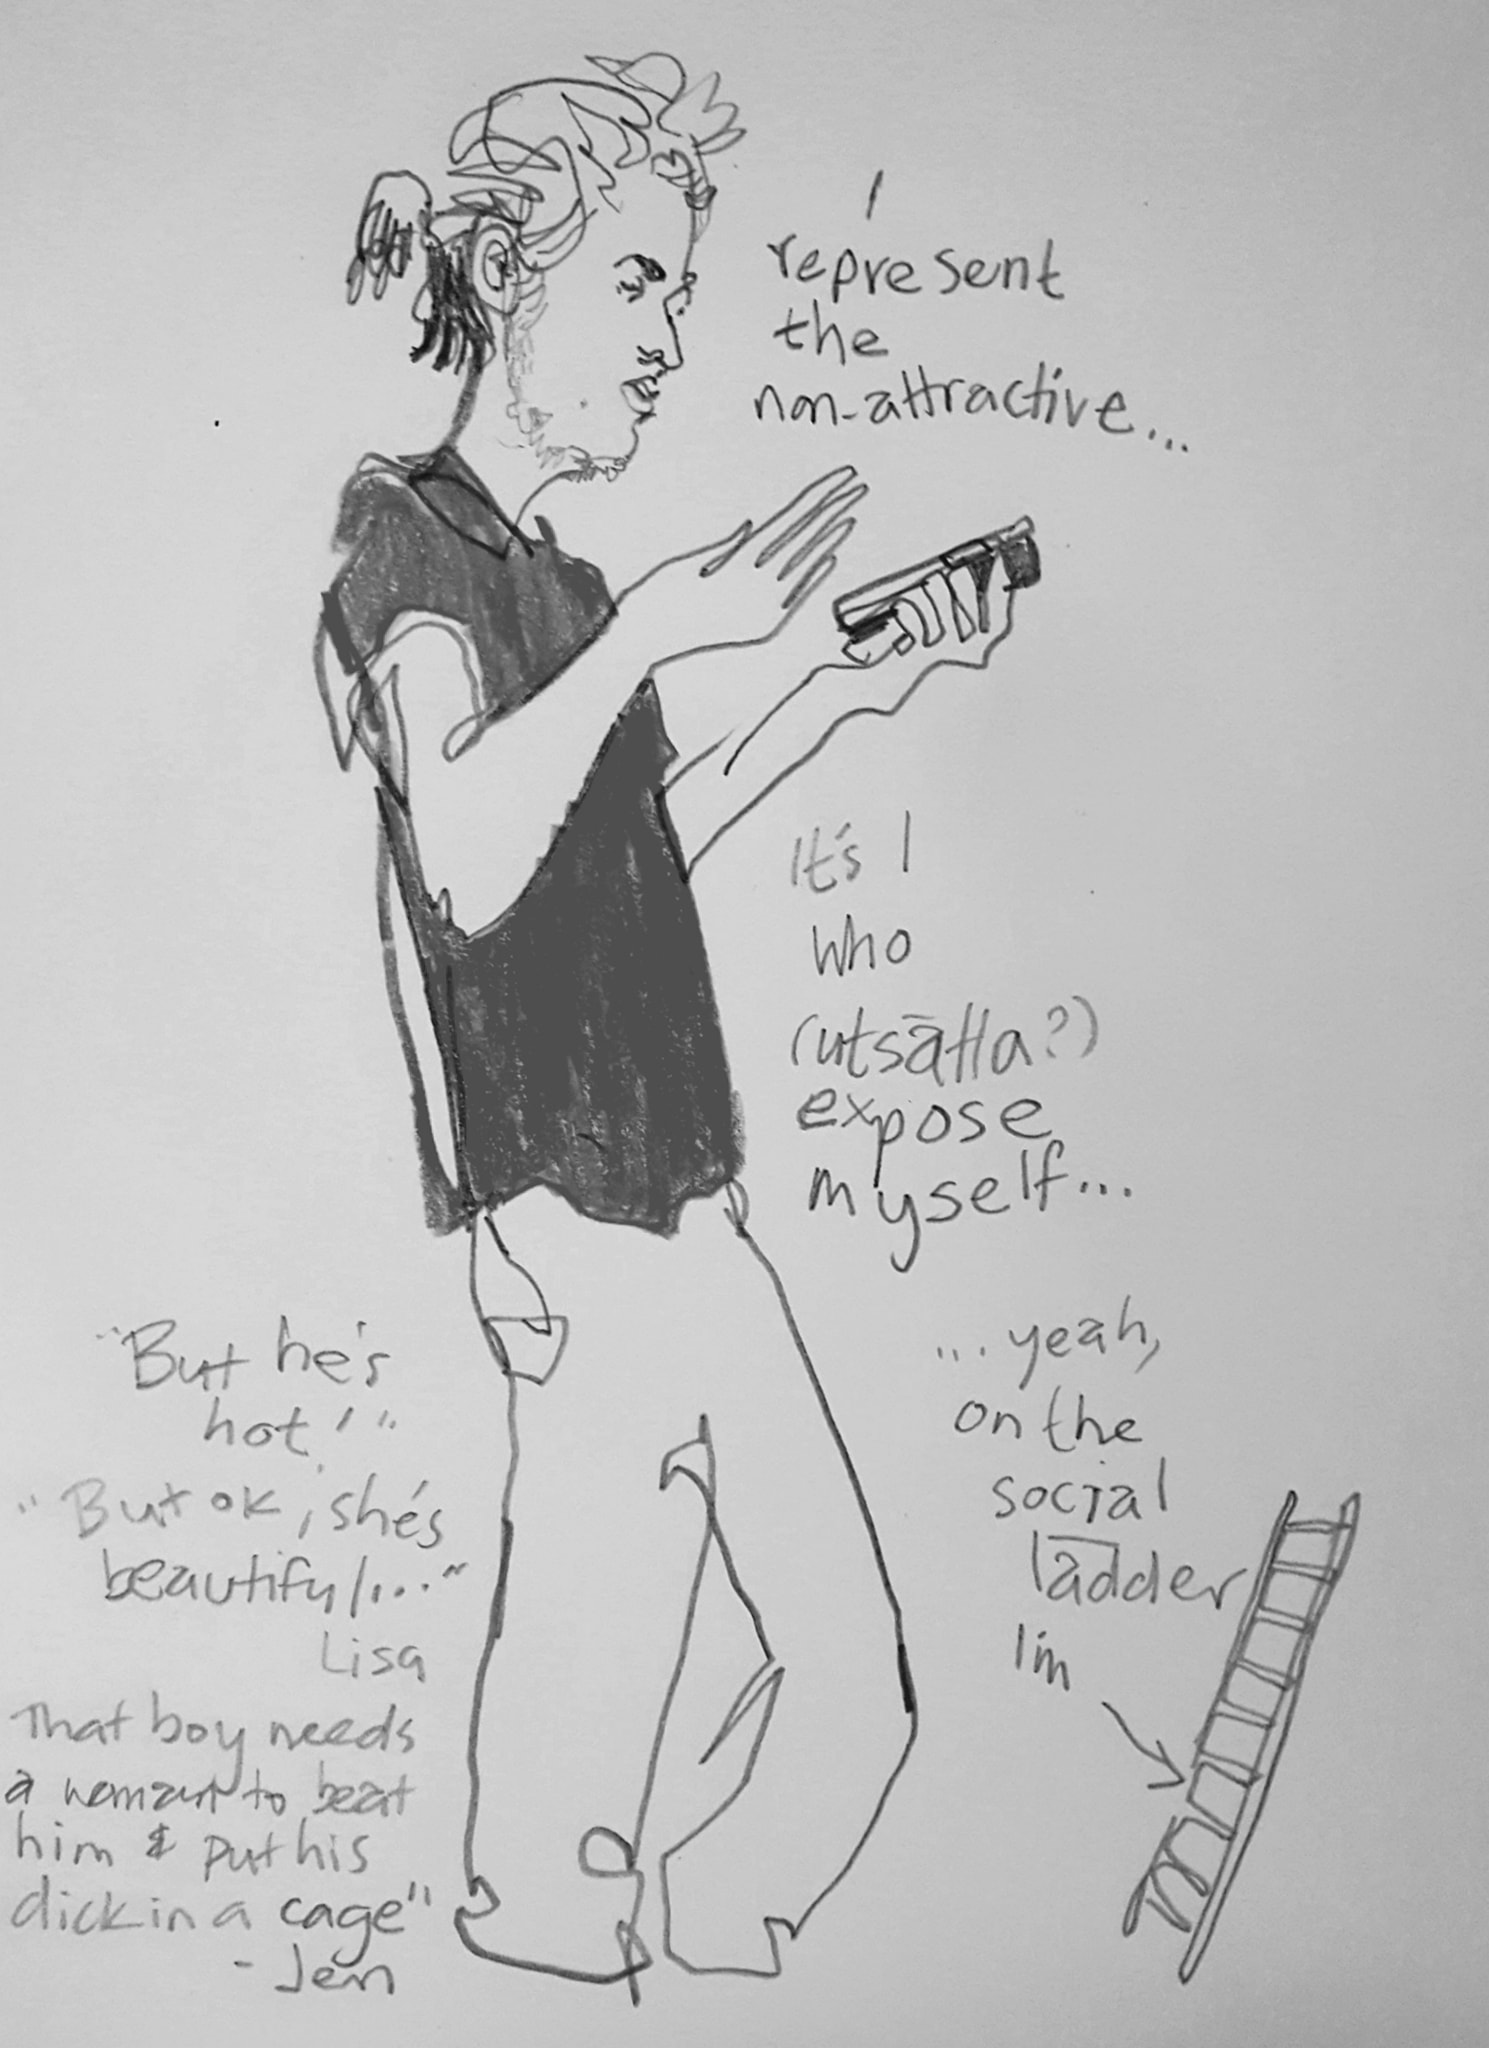 I
represent
the
non-attractive...
It's I
who
(utsätta?)
expose
myself...
"But he's
hot!"
"But ok, she's
beautiful..."
Lisa
That boy needs
a woman to beat
him & put his
dick in a cage"
- Jen
...yeah,
on the
social
ladder
I'm